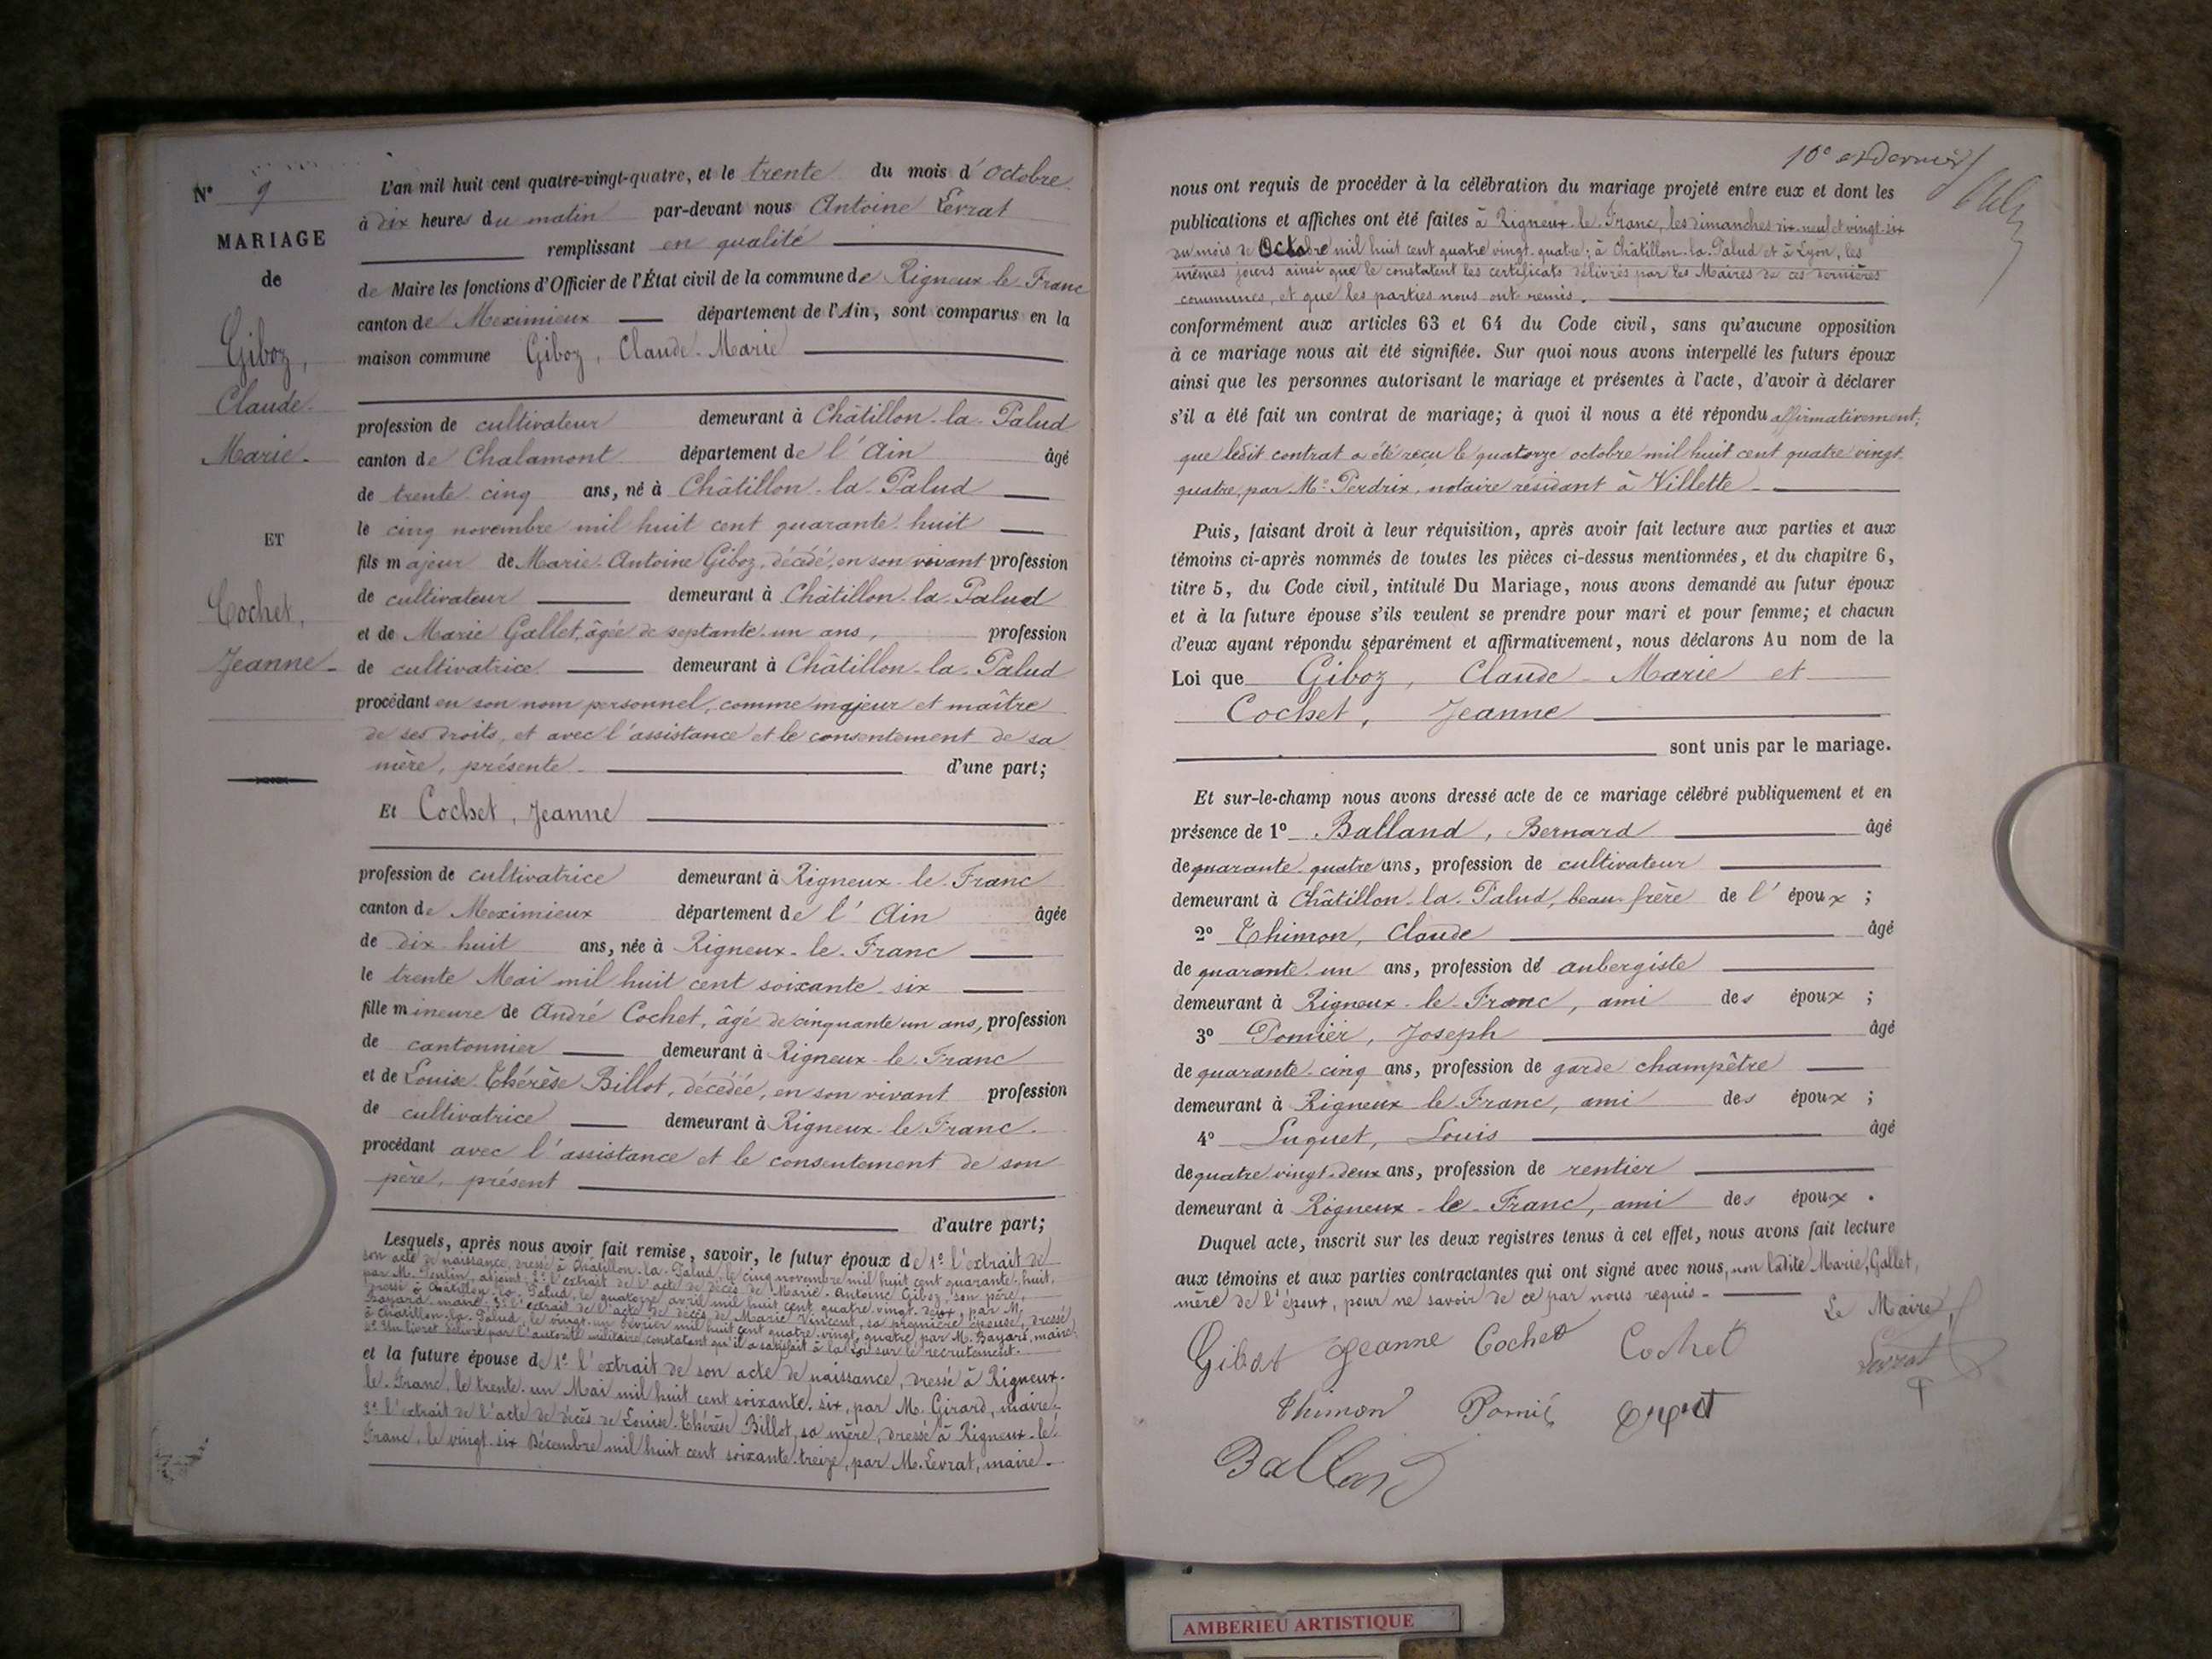 N° 9
MARIAGE
de
Giboz,
Claude-
Marie-
ET
Cochet,
Jeanne-
L'an mil huit cent quatre-vingt-quatre, et le trente du mois d'octobre
à dix heures du matin par-devant nous Antoine Levrat
remplissant en qualité
de Maire les fonctions d'Officier de l'État civil de la commune de Rigneux-le-Franc
canton de Meximieux département de l'Ain, sont comparus en la
maison commune Giboz, Claude-Marie
profession de cultivateur demeurant à Châtillon-la-Palud
canton de Chalamont département de l'Ain âgé
de trente-cinq ans, né à Châtillon-la-Palud
le cinq novembre mil huit cent quarante-huit
fils majeur de Marie-Antoine Giboz, décédé, en son vivant profession
de cultivateur demeurant à Châtillon-la-Palud
et de Marie Gallet, âgée de septante-un ans, profession
de cultivatrice demeurant à Châtillon-la-Palud
procédant en son nom personnel, comme majeur et maître
de ses droits, et avec l'assistance et le consentement de sa
mère, présente- d'une part;
Et Cochet, Jeanne
profession de cultivatrice demeurant à Rigneux-le-Franc
canton de Meximieux département de l'Ain âgée
de dix-huit ans, née à Rigneux-le-Franc
le trente Mai mil huit cent soixante-six
fille mineure de André Cochet, âgé de cinquante un ans, profession
de cantonnier demeurant à Rigneux-le-Franc
et de Louise-Thérèse Billot, décédée, en son vivant profession
de cultivatrice demeurant à Rigneux-le-Franc.
procédant avec l'assistance et le consentement de son
père, présent
d'autre part;
Lesquels, après nous avoir fait remise, savoir, le futur époux de 1° l'extrait de
son acte de naissance, dressé à Châtillon-la-Palud, le cinq novembre mil huit cent quarante-huit,
par M. adjoint; 2° l'extrait de l'acte de décès de Marie-Antoine Giboz, son père,
dressé à Châtillon-la-Palud, le quatorze avril mil huit cent quatre-vingt-deux, par M.
Bayard, maire; 3° l'extrait de l'acte de décès de Marie Vincent, sa première épouse, dressé
à Châtillon-la-Palud, le vingt-un février mil huit cent quatre-vingt-quatre, par M. Bayard, maire;
4° Un livret délivré par l'autorité militaire, constatant qu'il a satisfait à la loi sur le recrutement.
et la future épouse de 1° l'extrait de son acte de naissance, dressé à Rigneux-
le-Franc, le trente-un Mai mil huit cent soixante-six, par M. Girard, maire;
2° l'extrait de l'acte de décès de Louise-Thérèse Billot, sa mère, dressé à Rigneux-le-
Franc, le vingt-six Décembre mil huit cent soixante-treize, par M. Levrat, maire.
10e et dernier
nous ont requis de procéder à la célébration du mariage projeté entre eux et dont les
publications et affiches ont été faites à Rigneux-le-Franc, les dimanches dix-neuf et vingt-six
du mois de Octobre mil huit cent quatre-vingt-quatre; à Châtillon-la-Palud et à Lyon, les
mêmes jours ainsi que le constatent les certificats délivrés par les Maires de ces dernières
communes, et que les parties nous ont remis.
conformément aux articles 63 et 64 du Code civil, sans qu'aucune opposition
à ce mariage nous ait été signifiée. Sur quoi nous avons interpellé les futurs époux
ainsi que les personnes autorisant le mariage et présentes à l'acte, d'avoir à déclarer
s'il a été fait un contrat de mariage; à quoi il nous a été répondu affirmativement;
que ledit contrat a été reçu le quatorze octobre mil huit cent quatre-vingt-
quatre, par Me Perdrix, notaire résidant à Villette-
Puis, faisant droit à leur réquisition, après avoir fait lecture aux parties et aux
témoins ci-après nommés de toutes les pièces ci-dessus mentionnées, et du chapitre 6,
titre 5, du Code civil, intitulé Du Mariage, nous avons demandé au futur époux
et à la future épouse s'ils veulent se prendre pour mari et pour femme; et chacun
d'eux ayant répondu séparément et affirmativement, nous déclarons Au nom de la
Loi que Giboz, Claude-Marie et
Cochet, Jeanne
sont unis par le mariage.
Et sur-le-champ nous avons dressé acte de ce mariage célébré publiquement et en
présence de 1° Balland, Bernard âgé
de quarante-quatre ans, profession de cultivateur
demeurant à Châtillon-la-Palud, beau-frère de l'époux ;
2° Thimon, Claude âgé
de quarante-un ans, profession de aubergiste
demeurant à Rigneux-le-Franc, ami des époux ;
3° Pomier, Joseph âgé
de quarante-cinq ans, profession de garde champêtre
demeurant à Rigneux le-Franc, ami des époux ;
4° Luquet, Louis âgé
de quatre-vingt-deux ans, profession de rentier
demeurant à Rigneux-le-Franc, ami des époux .
Duquel acte, inscrit sur les deux registres tenus à cet effet, nous avons fait lecture
aux témoins et aux parties contractantes qui ont signé avec nous, non ladite Marie Gallet,
mère de l'époux, pour ne savoir de ce par nous requis-
Le Maire,
Gibot Jeanne Cochet Cochet Levrat
Thimon Pomié
Balland
AMBERIEU ARTISTIQUE